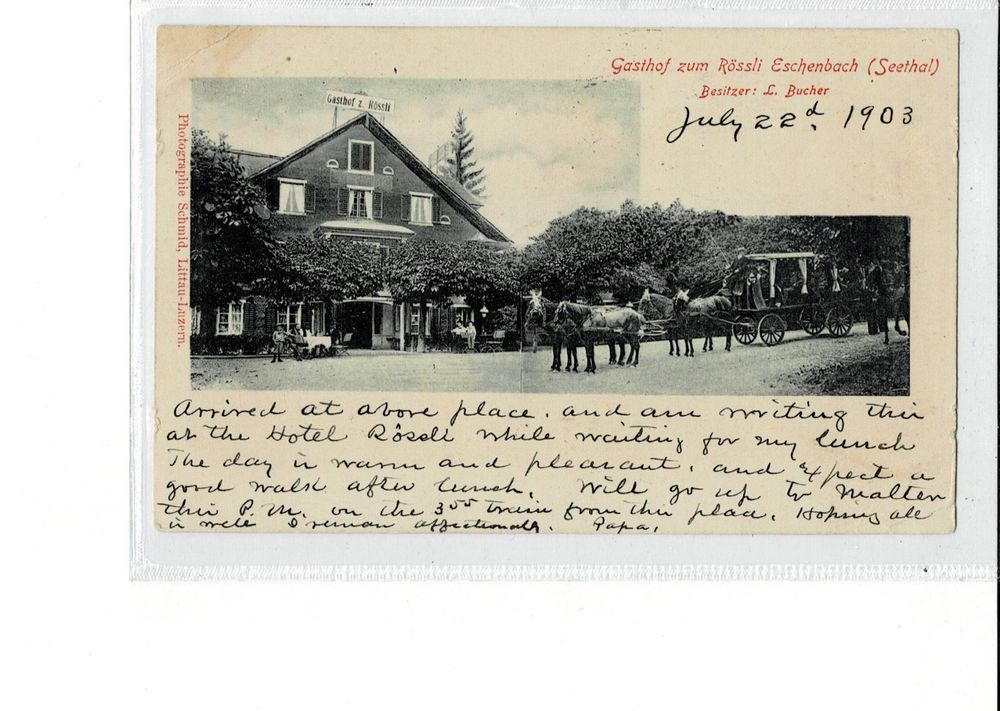 Gasthof zum Rössli Eschenbach (Seethal)
Besitzer: L. Bucher
July 22d, 1903
Gasthof z. Rössli
Photographie Schmid, Littau-Luzern.
Arrived at above place. and am writing this
at the Hotel Rössli while waiting for my lunch
The day is warm and pleasant, and expect a
good walk after lunch. Will go up to Malten
this P.M. on the 3 55 train from this place. Hoping all
is well I remain affectionately. Papa.